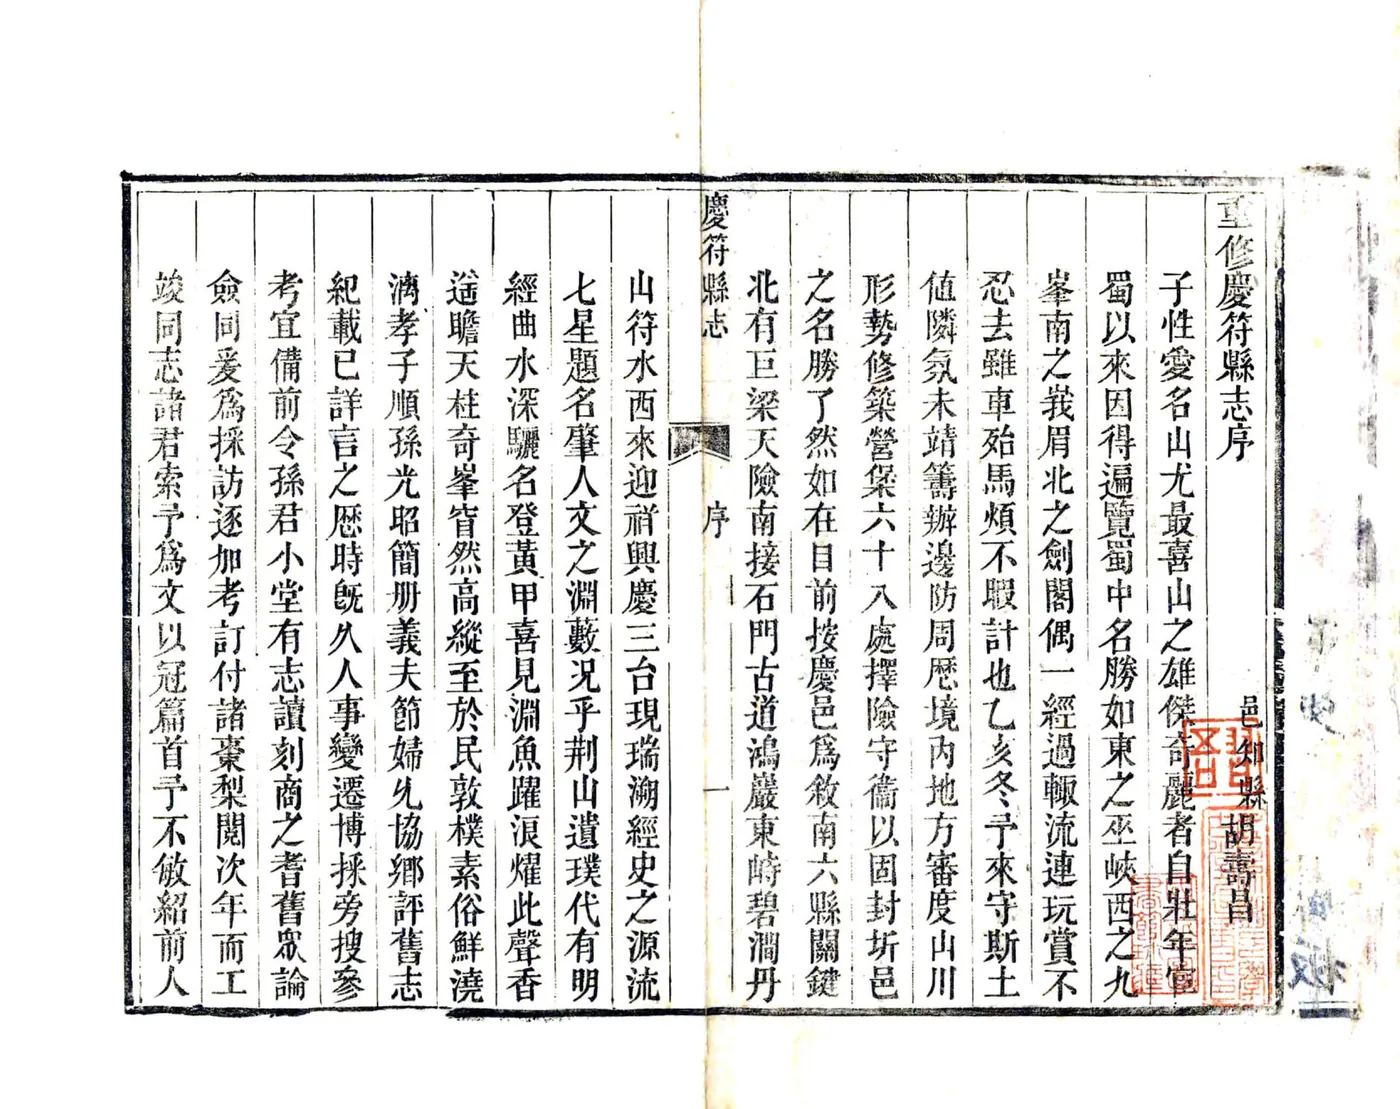 重修慶符縣志序
邑知縣胡壽昌
予性愛名山尤最喜山之雄傑奇麗者自壯年宦
蜀以來因得遍覽蜀中名勝如東之巫峽西之九
峯南之峩眉北之劍閣偶一經過輒流連玩賞不
忍去雖車殆馬煩不暇計也乙亥冬予來守斯土
値隣氛未靖籌辦邊防周歷境內地方審度山川
形勢修築營堡六十八處擇險守衞以固封圻邑
之名勝了然如在目前按慶邑爲敘南六縣關鍵
北有巨梁天險南接石門古道鴻巖東峙碧澗丹
慶符縣志
序
一
山符水西來迎祥興慶三台現瑞溯經史之源流
七星題名肇人文之淵藪况乎荆山遺璞代有明
經曲水深驪名登黃甲喜見淵魚躍浪燿此聲香
遥瞻天柱奇峯窅然高縱至於民敦樸素俗鮮澆
漓孝子順孫光昭簡册義夫節婦允協鄉評舊志
紀載已詳言之歷時旣久人事變遷博採旁搜參
考宜備前令孫君小堂有志讀刻商之耆舊衆論
僉同爰爲採訪逐加考訂付諸棗梨閱次年而工
竣同志諸君索予爲文以冠篇首予不敏紹前人